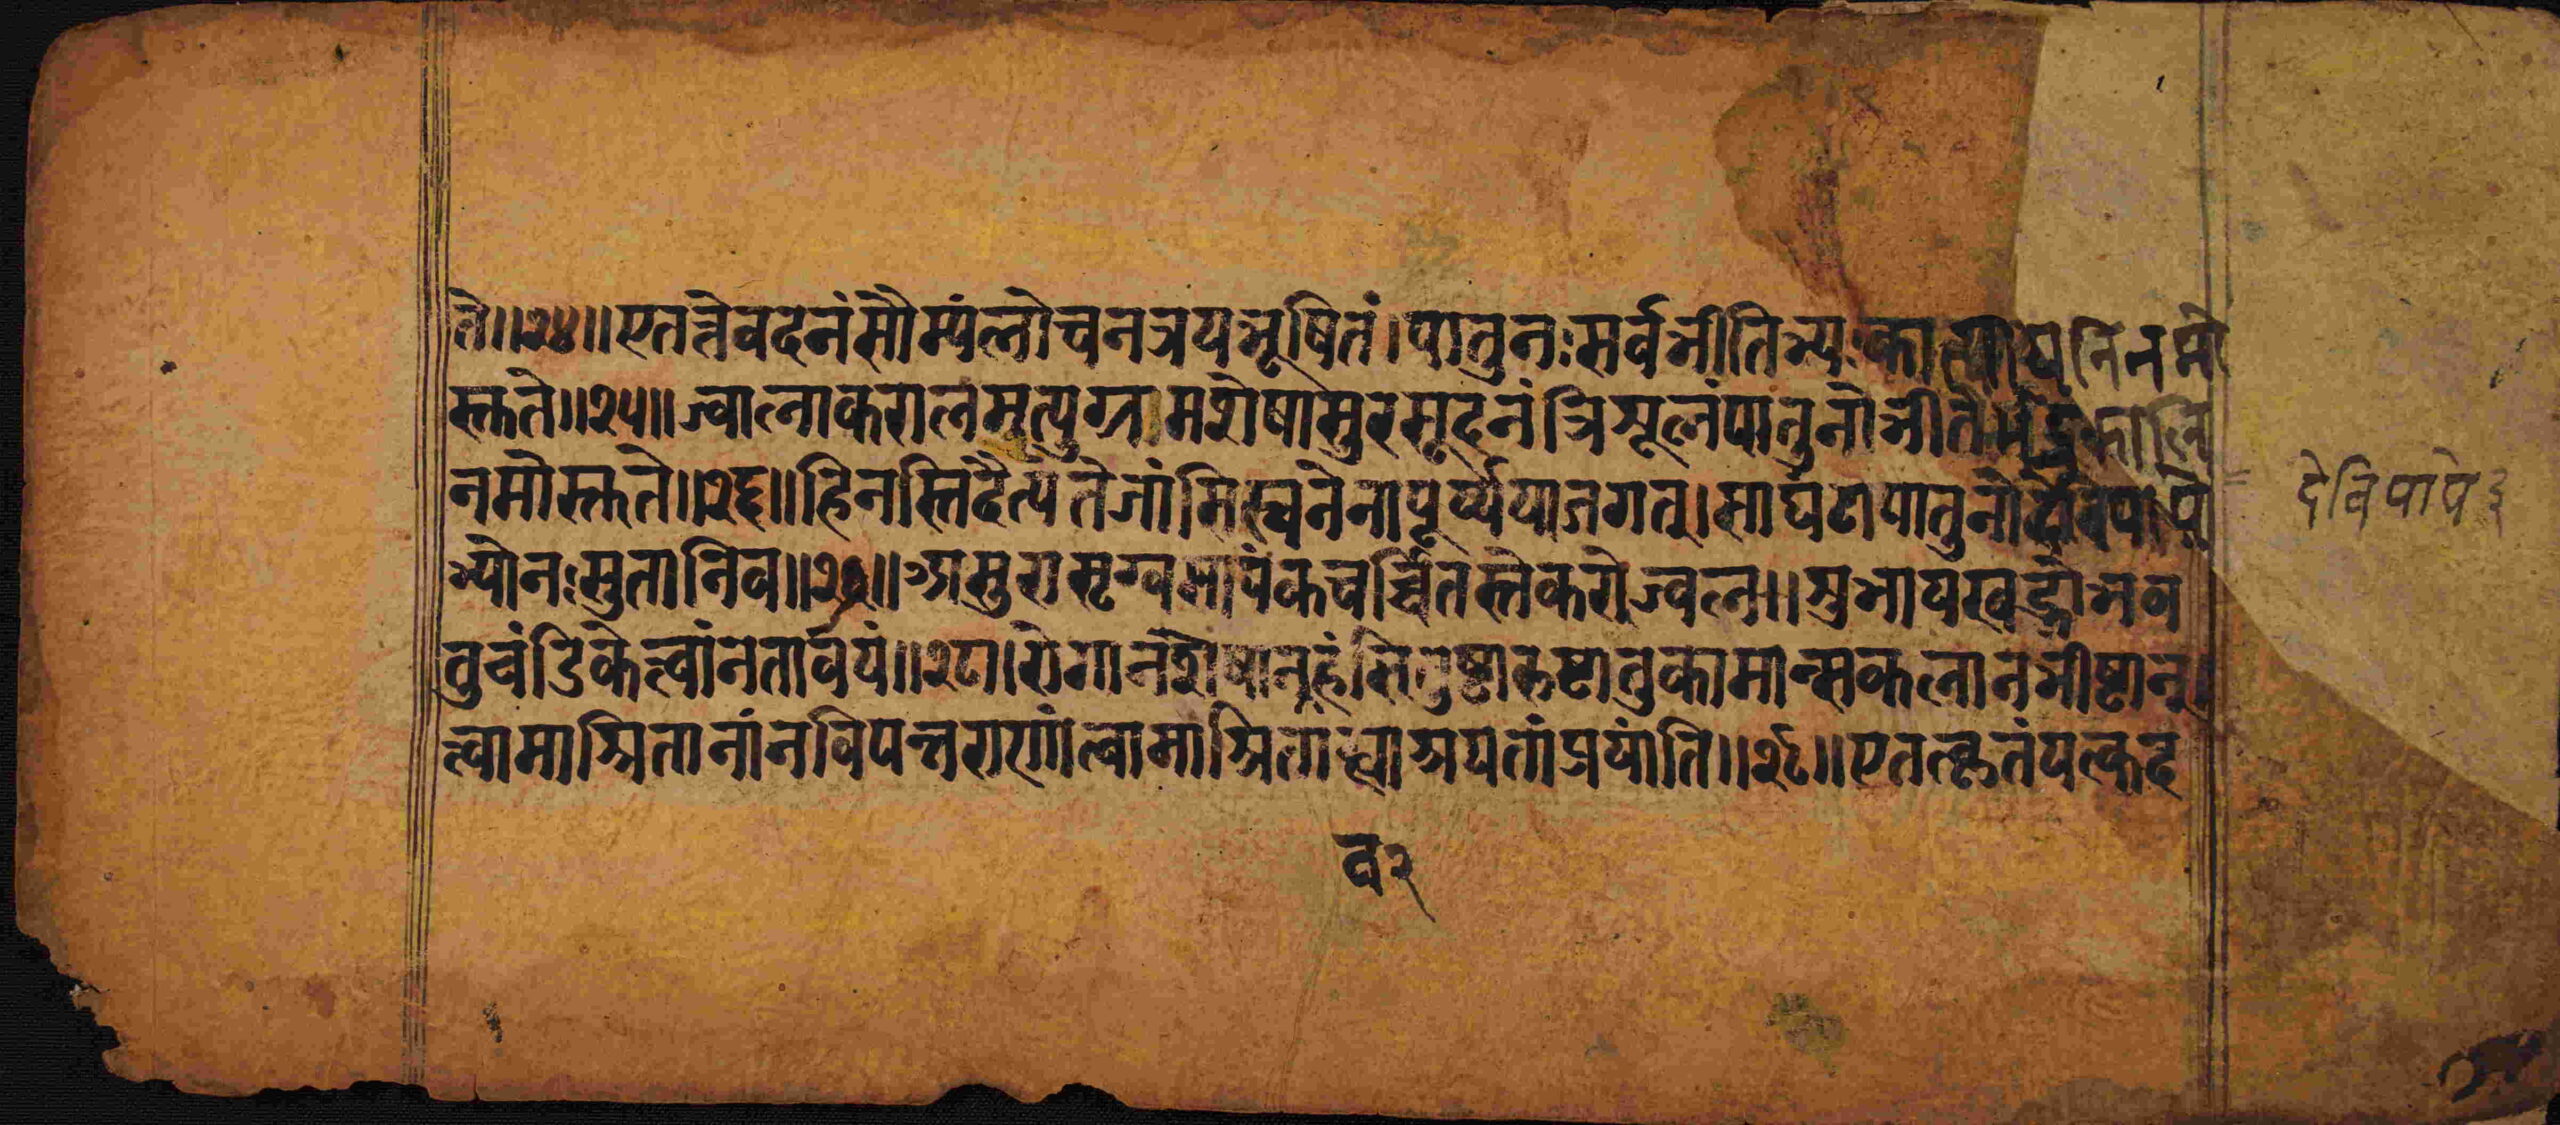 ते॥२४॥एतत्तेवदनंसौम्यंलोचनत्रयभूषितं।पातुनःसर्वभीतिभ्यःकात्यायनिनमो
स्तुते॥२५॥ज्वालाकरालमत्युग्रमशेषासुरसूदनंत्रिशूलंपातुनोभीतेर्भद्रकालि
नमोस्तुते॥२६॥हिनस्तिदैत्यतेजांसिस्वनेनापूर्य्ययाजगत्।साघंटापातुनोदेविपापे
भ्योनःसुतानिव॥२७॥असुरासृग्वसापंकचर्च्चितस्तेकरोज्वल॥शुभायखड्गोभव
तुचंडिकेत्वांनतावयं॥२८॥रोगानशेषानहंसितुष्टारुष्टातुकामान्सकलानभीष्टान्।
त्वामाश्रितानांनविपन्नराणांत्वामाश्रिताह्याश्रयतांप्रयांति॥२९॥एतत्कृतंयत्कद
व२
देविपापे३